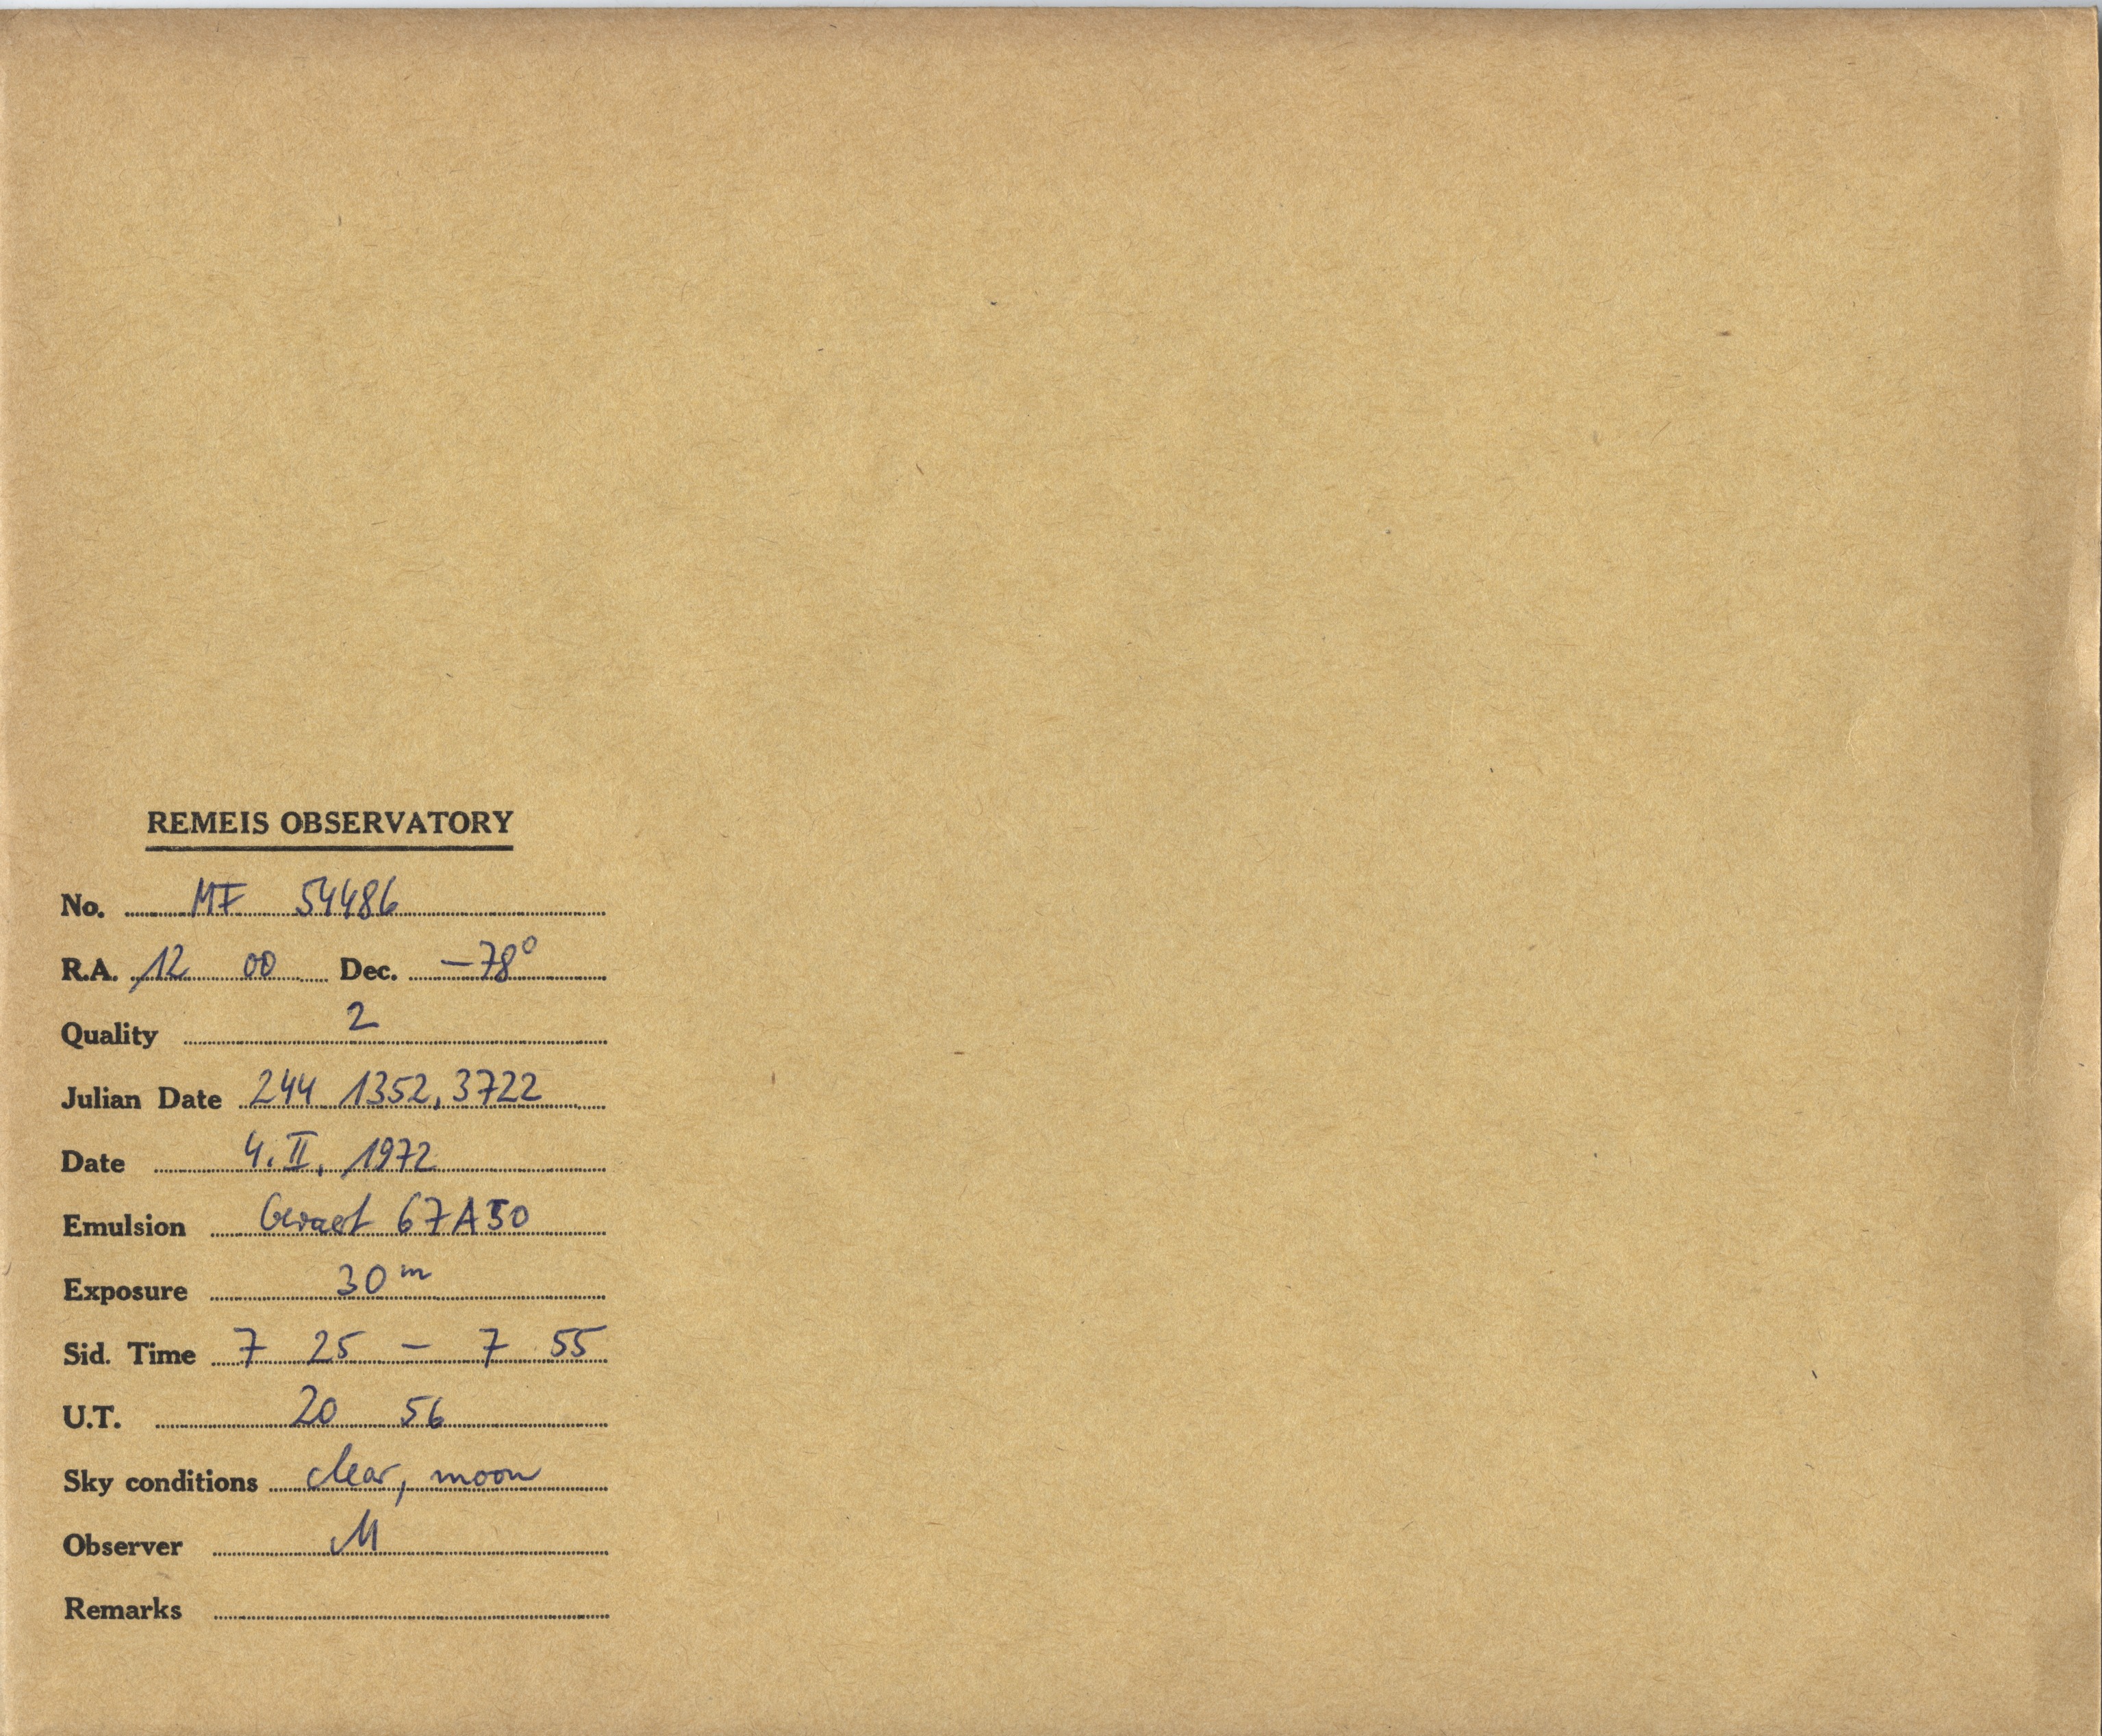 REMEIS OBSERVATORY
No. MF 54486
R.A. 12 00 Dec. -78°
Quality 2
Julian Date 244 1352,3722
Date 4. II. 1972
Emulsion Gevaert 67A50
Exposure 30 m
Sid. Time 7 25 – 7 55
U.T. 20 56
Sky conditions clear, moon
Observer M
Remarks